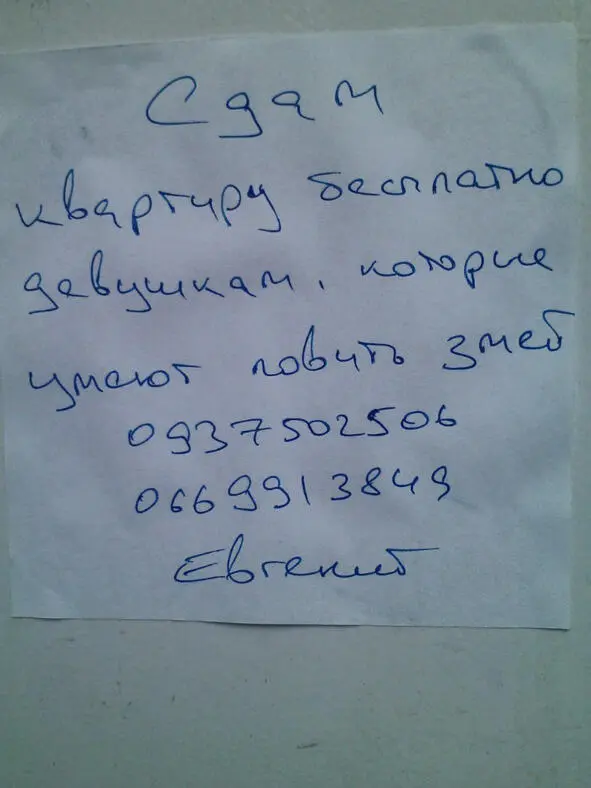 Сдам
квартиру бесплатно
девушкам, которые
умеют ловить змей
0937502506
0669913849
Евгений